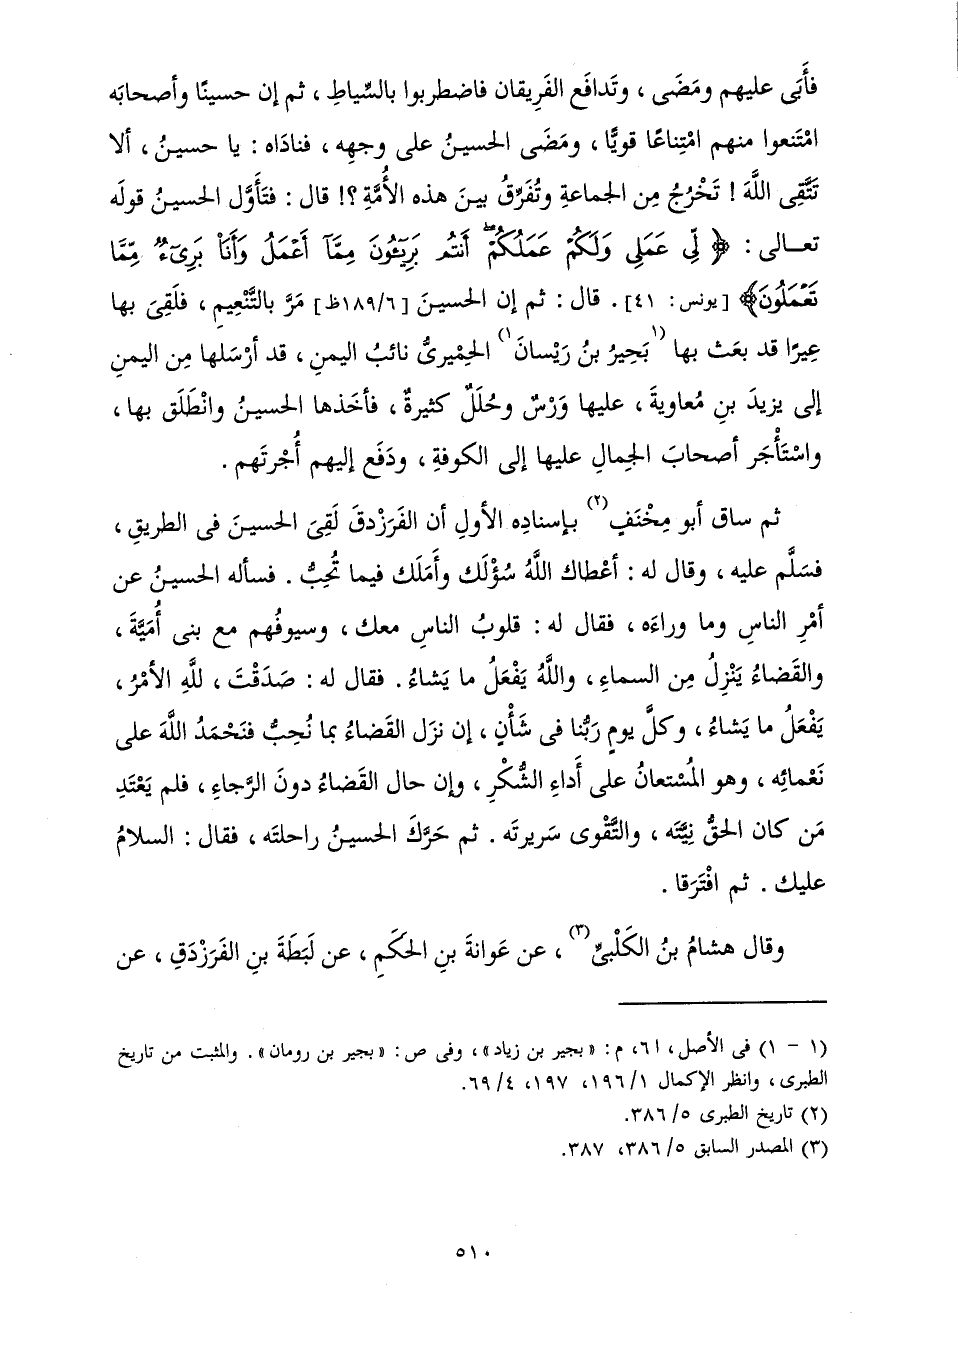 فأَبَى عليهم ومَضَى ، وتَدافَع الفَريقان فاضطربوا بالسِّياطِ ، ثم إن حسينًا وأصحابَه
امْتَنعوا منهم امْتِناعًا قويًّا ، ومَضَى الحسينُ على وجهِه ، فنادَاه : يا حسينُ ، ألا
تَتَّقِى اللَّهَ ! تَخْرُجُ مِن الجماعةِ وتُفَرِّقُ بينَ هذه الأُمَّةِ ؟! قال : فتَأَوَّل الحسينُ قولَه
تعالى : ﴿ لِّى عَمَلِى وَلَكُمْ عَمَلُكُمْۖ أَنتُم بَرِيٓـُٔونَ مِمَّآ أَعْمَلُ وَأَنَا۠ بَرِىٓءٌ مِّمَّا
تَعْمَلُونَ﴾ [ يونس : ٤١] . قال : ثم إن الحسينَ [٦/ ١٨٩ظ] مَرَّ بالتَّنْعِيمِ ، فلَقِىَ بها
عِيرًا قد بعَث بها (١ بَحِيرُ بنُ رَيْسانَ ١) الحِمْيرىُّ نائبُ اليمنِ ، قد أرْسَلها مِن اليمنِ
إلى يزيدَ بنِ مُعاويةَ ، عليها وَرْسٌ وحُلَلٌ كثيرةٌ ، فأخَذها الحسينُ وانْطَلَق بها ،
واسْتَأْجَر أصحابَ الجِمالِ عليها إلى الكوفةِ ، ودَفَع إليهم أُجْرتَهم .
ثم ساق أبو مِخْنَفٍ (٢) بإسنادِه الأولِ أن الفَرَزْدقَ لَقِىَ الحسينَ فى الطريقِ ،
فسَلَّم عليه ، وقال له : أعْطاك اللَّهُ سُؤْلَك وأمَلَك فيما تُحِبُّ . فسأله الحسينُ عن
أمْرِ الناسِ وما وراءَه ، فقال له : قلوبُ الناسِ معك ، وسيوفُهم مع بنى أُمَيَّةَ ،
والقَضاءُ يَنْزِلُ مِن السماءِ ، واللَّهُ يَفْعَلُ ما يَشاءُ . فقال له : صَدَقْتَ ، للَّهِ الأمْرُ ،
يَفْعَلُ ما يَشاءُ ، وكلَّ يومٍ رَبُّنا فى شَأْنٍ ، إن نزَل القَضاءُ بما نُحِبُّ فنَحْمَدُ اللَّهَ على
نَعْمائِه ، وهو المُسْتعانُ على أداءِ الشُّكْرِ ، وإن حال القَضاءُ دونَ الرَّجاءِ ، فلم يَعْتَدِ
مَن كان الحقُّ نِيَّتَه ، والتَّقْوى سَريرتَه . ثم حَرَّكَ الحسينُ راحلتَه ، فقال : السلامُ
عليك . ثم افْتَرَقا .
وقال هشامُ بنُ الكَلْبىِّ (٣) ، عن عَوانةَ بنِ الحكَمِ ، عن لَبَطَةَ بنِ الفَرَزْدَقِ ، عن
(١ - ١) فى الأصل ، ٦١ ، م : « بجير بن زياد » ، وفى ص : « بجير بن رومان » . والمثبت من تاريخ
الطبرى ، وانظر الإكمال ١/ ١٩٦، ١٩٧، ٤/ ٦٩.
(٢) تاريخ الطبرى ٥/ ٣٨٦.
(٣) المصدر السابق ٥/ ٣٨٦، ٣٨٧.
٥١٠